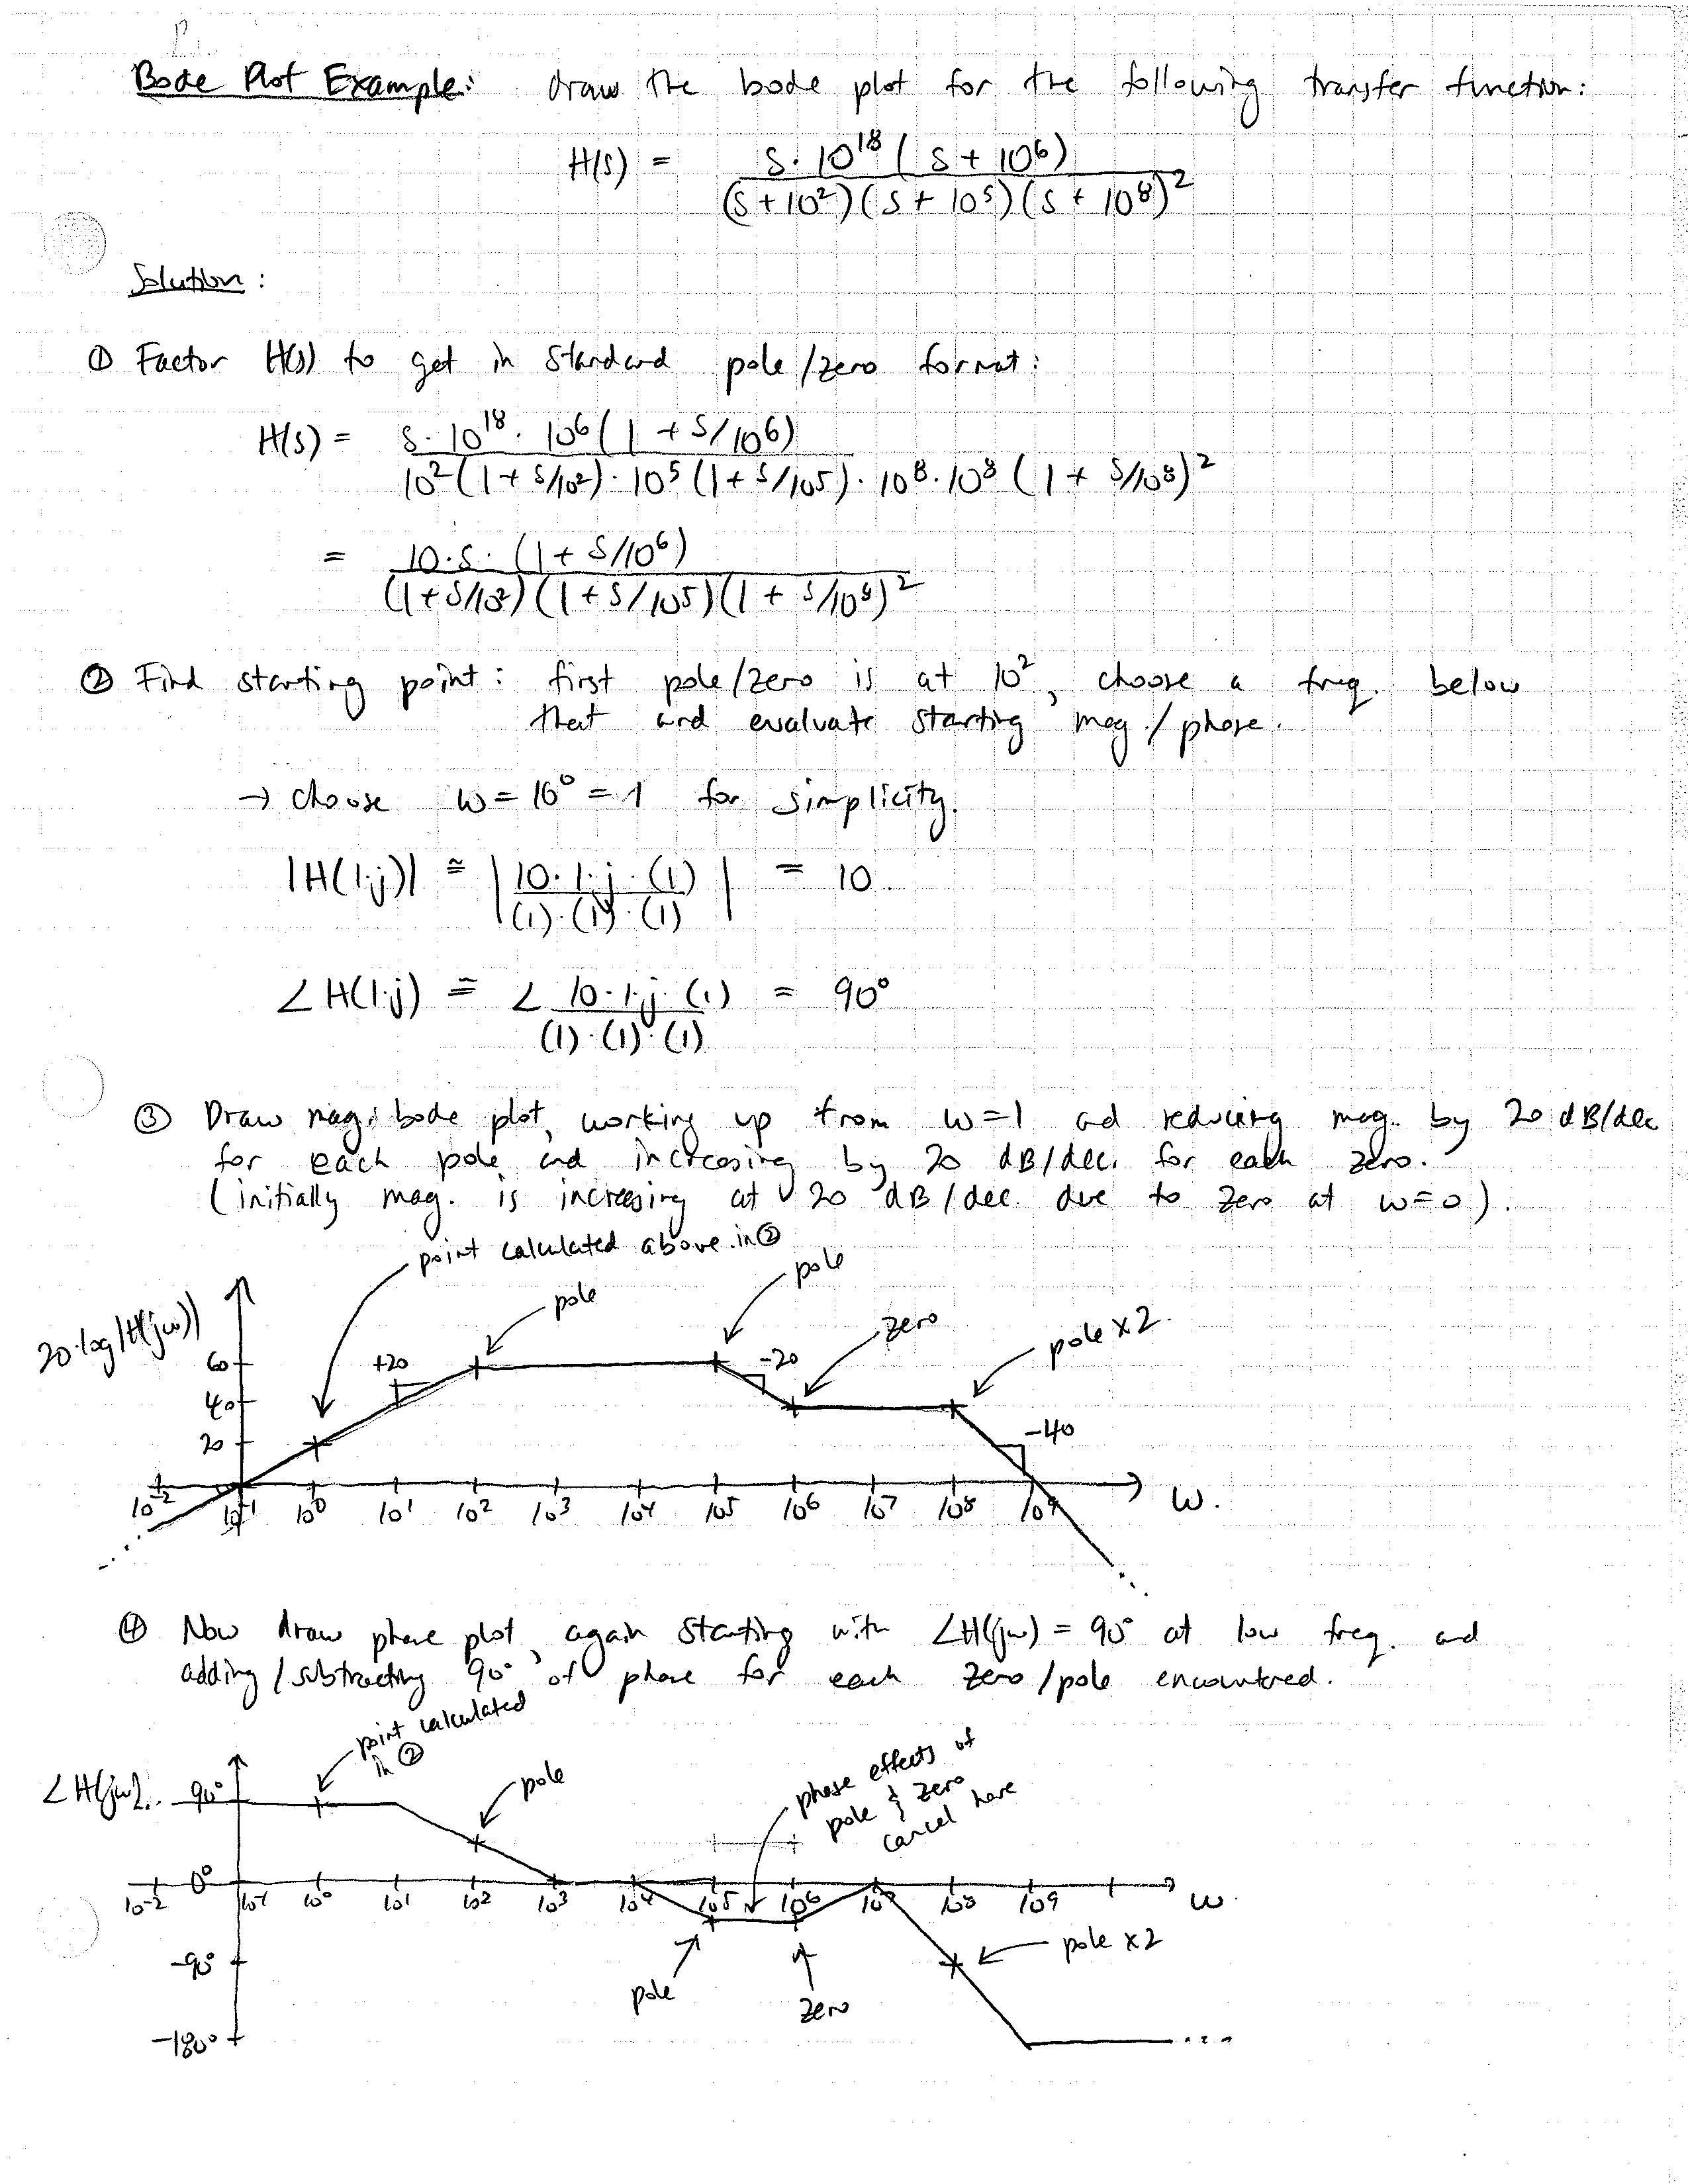 Bode Plot Example: draw the bode plot for the following transfer function:
H(s) = s·10^18 (s + 10^6) / (s+10^2)(s+10^5)(s+10^8)^2
Solution:
① Factor H(s) to get in standard pole/zero format:
H(s) = s·10^18·10^6(1 + s/10^6) / 10^2(1+s/10^2)·10^5(1+s/10^5)·10^8·10^8(1+s/10^8)^2
= 10·s·(1+s/10^6) / (1+s/10^2)(1+s/10^5)(1+s/10^8)^2
② Find starting point: first pole/zero is at 10^2, choose a freq. below
that and evaluate starting mag./phase.
→ choose w = 10^0 = 1 for simplicity.
|H(1·j)| ≅ |10·1·j·(1) / (1)·(1)·(1)| = 10
∠H(1·j) ≅ ∠ 10·1·j·(1) / (1)·(1)·(1) = 90°
③ Draw mag. bode plot, working up from w=1 ad reducing mag. by 20 dB/dec
for each pole and increasing by 20 dB/dec. for each zero.
(initially mag. is increasing at 20 dB/dec. due to zero at w=0).
point calculated above in ②
pole
pole
zero
pole x2
20·log|H(jw)|
60
40
20
+20
-20
-40
10^-2 10^-1 10^0 10^1 10^2 10^3 10^4 10^5 10^6 10^7 10^8 10^9 w.
④ Now draw phase plot, again starting with ∠H(jw) = 90° at low freq. and
adding/subtracting 90° of phase for each zero/pole encountered.
point calculated
in ②
pole
phase effects of
pole & zero
cancel here
∠H(jw)
90°
0°
10^-2 10^-1 10^0 10^1 10^2 10^3 10^4 10^5 10^6 10^7 10^8 10^9 w
-90°
pole x2
pole
zero
-180°